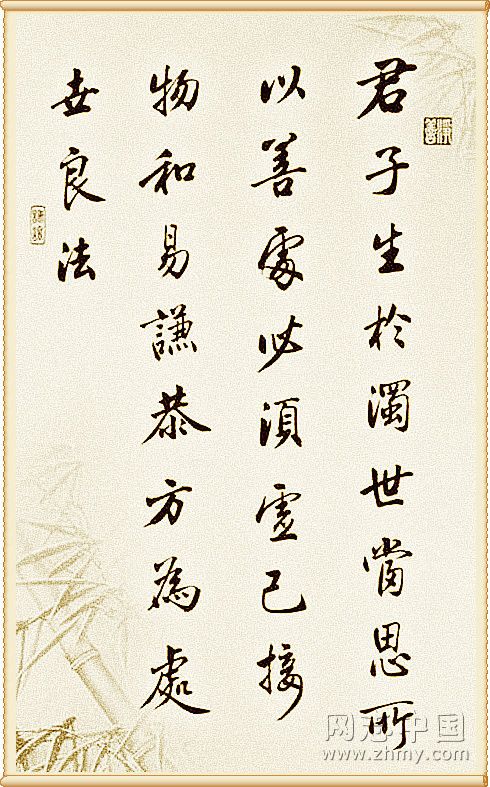 君子生於濁世當思所
以善處必須虛己接
物和易謙恭方為處
世良法
网冠中国
www.zhmy.com